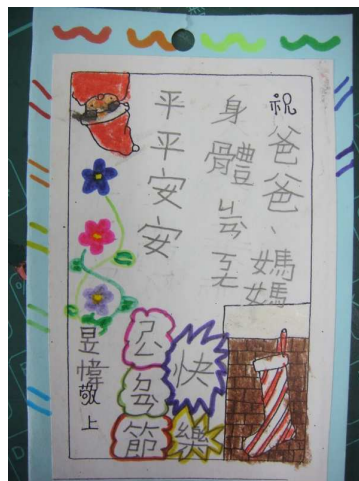 祝爸爸、媽媽
身體
平平安安
節
快樂
昱幃敬上